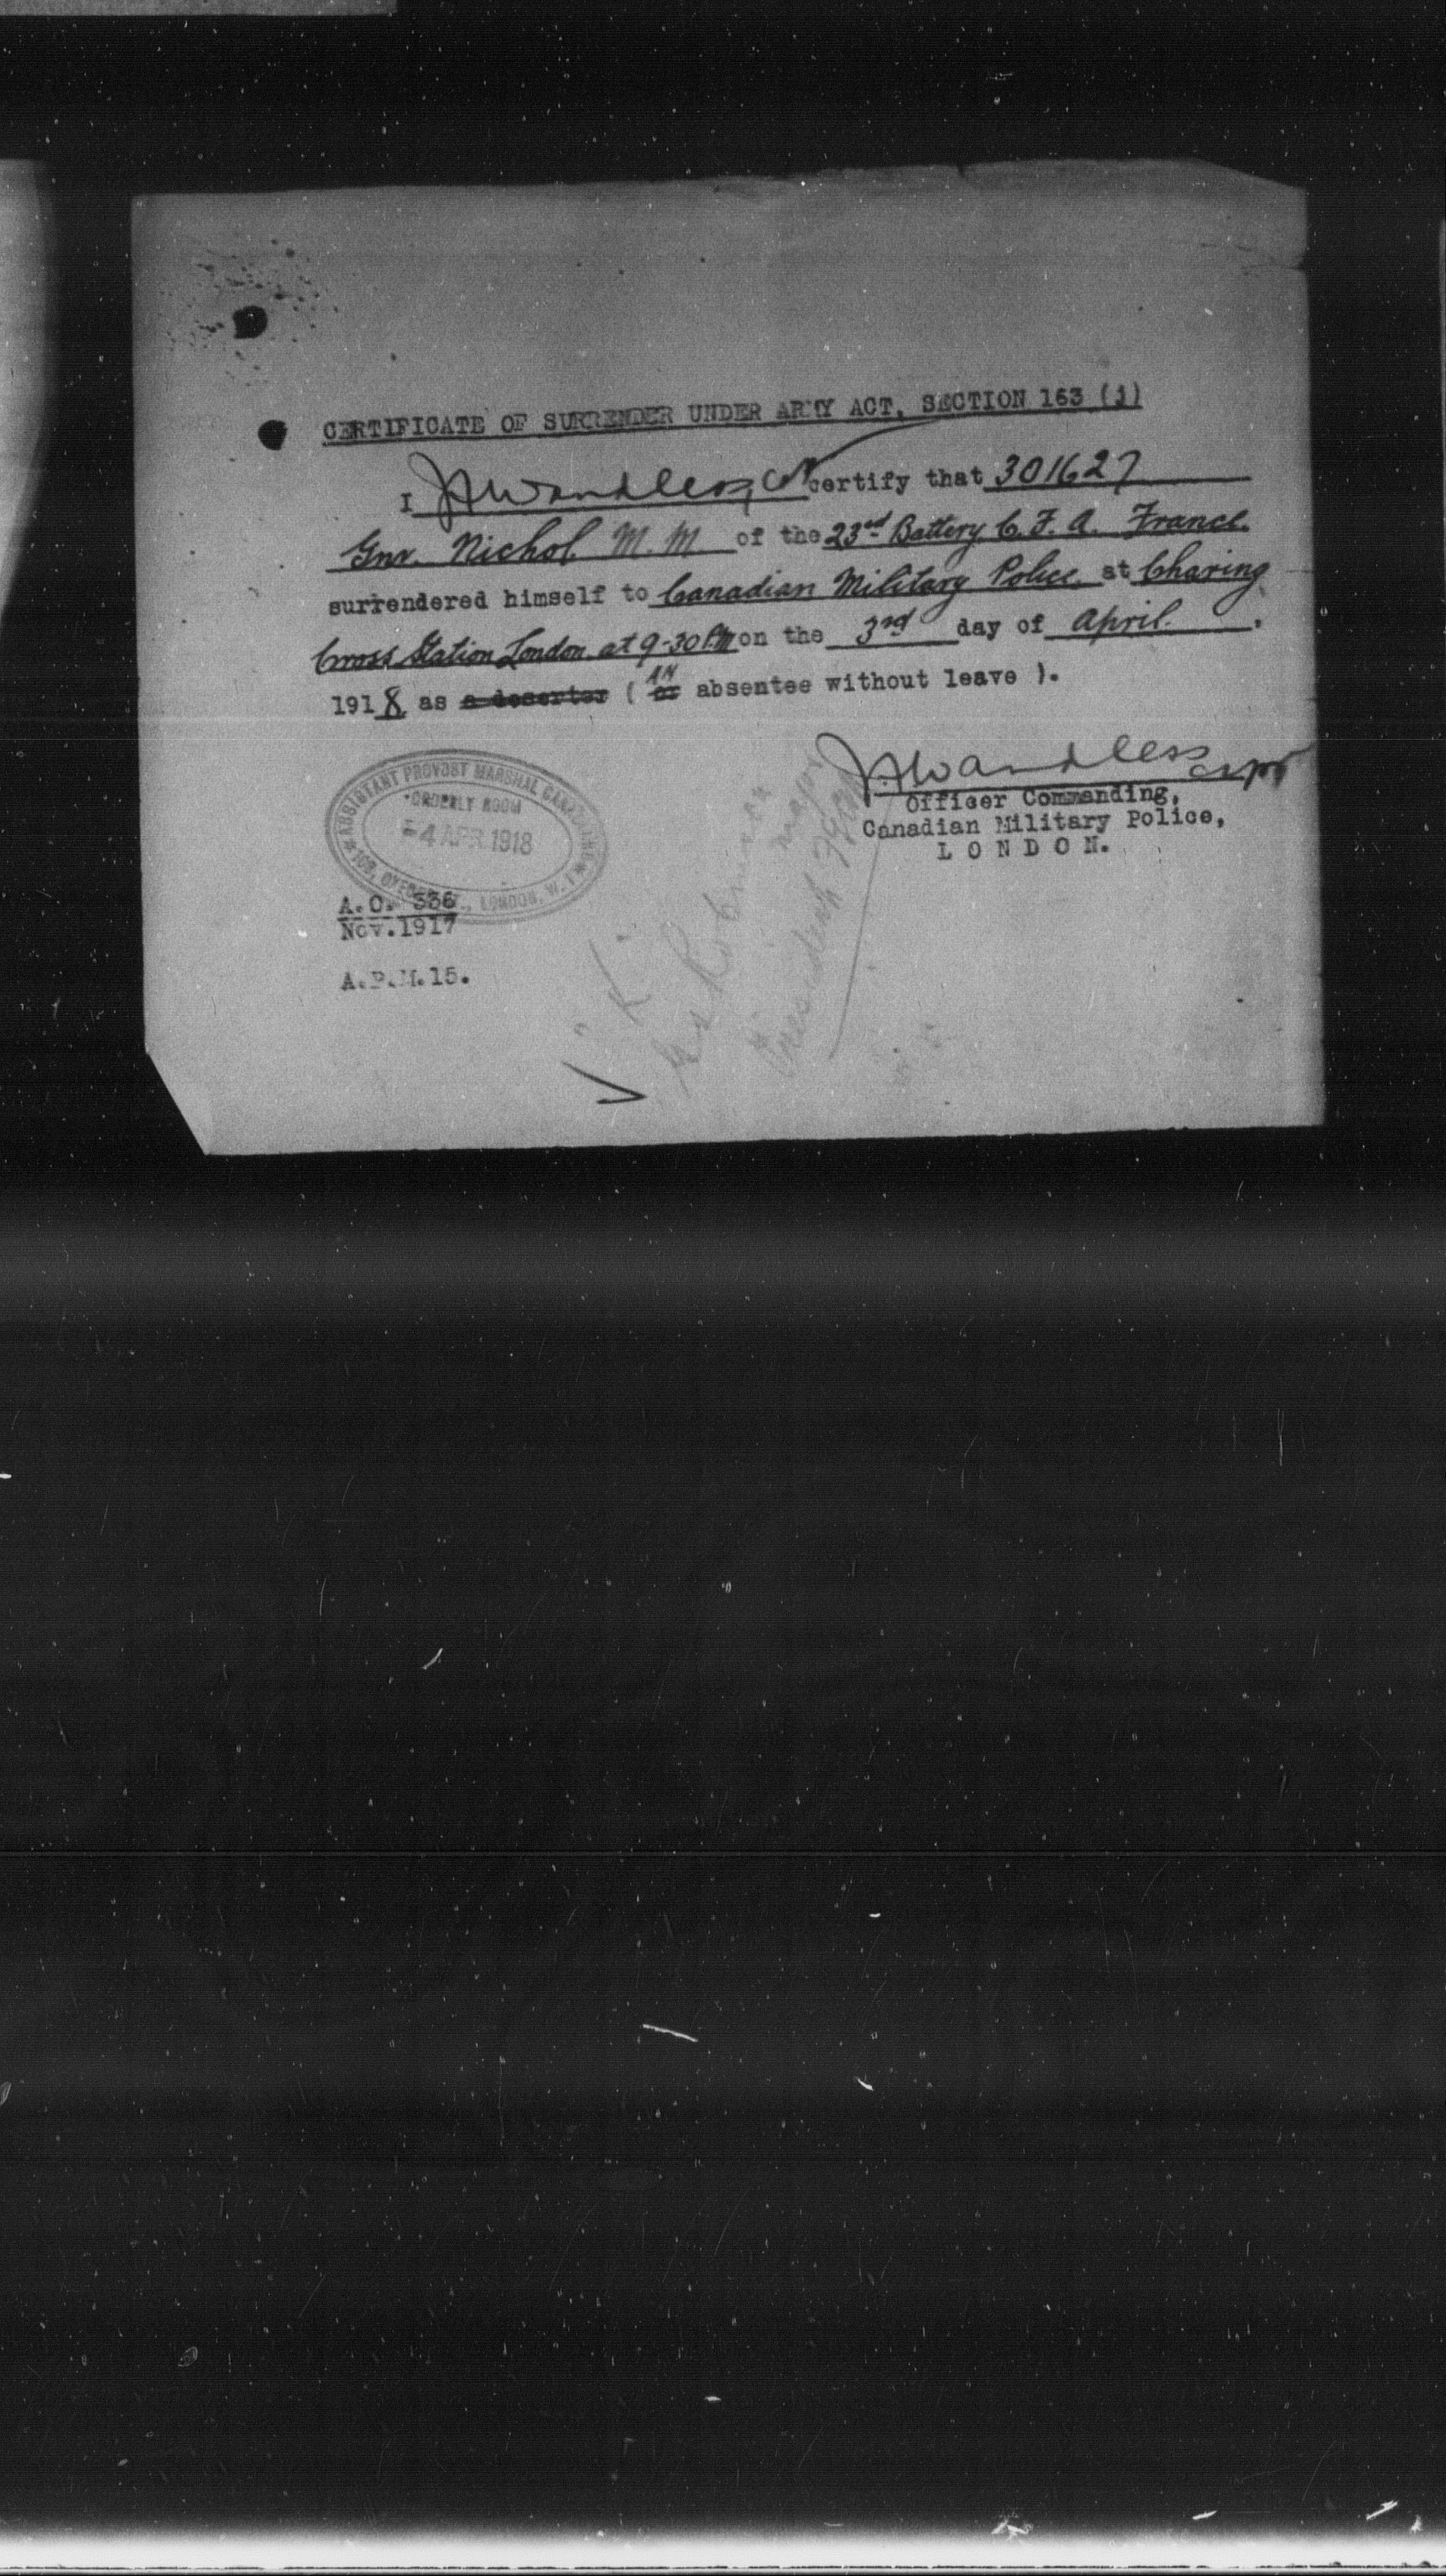 CERTIFICATE OF SURRENDER UNDER ARMY ACT, SECTION 163 (j)
I J A Wandless, certify that 301627
Gnr. Nichol. M. M of the 23rd Battery C. F. A. France.
surrendered himself to Canadian Military Police. at Charing
Cross Station London. at 9-30 P.M on the 3rd day of April.
1918 as a deserter ( or AN absentee without leave ).
J. A Wandless
Officer Commanding,
Canadian Military Police,
LONDON.
ASSISTANT PROVOST MARSHAL
ORDERLY ROOM
4 APR 1918
LONDON, W.1
A.C. 336
Nov.1917
A.P.M.15.
"K"
Robinson Major
President